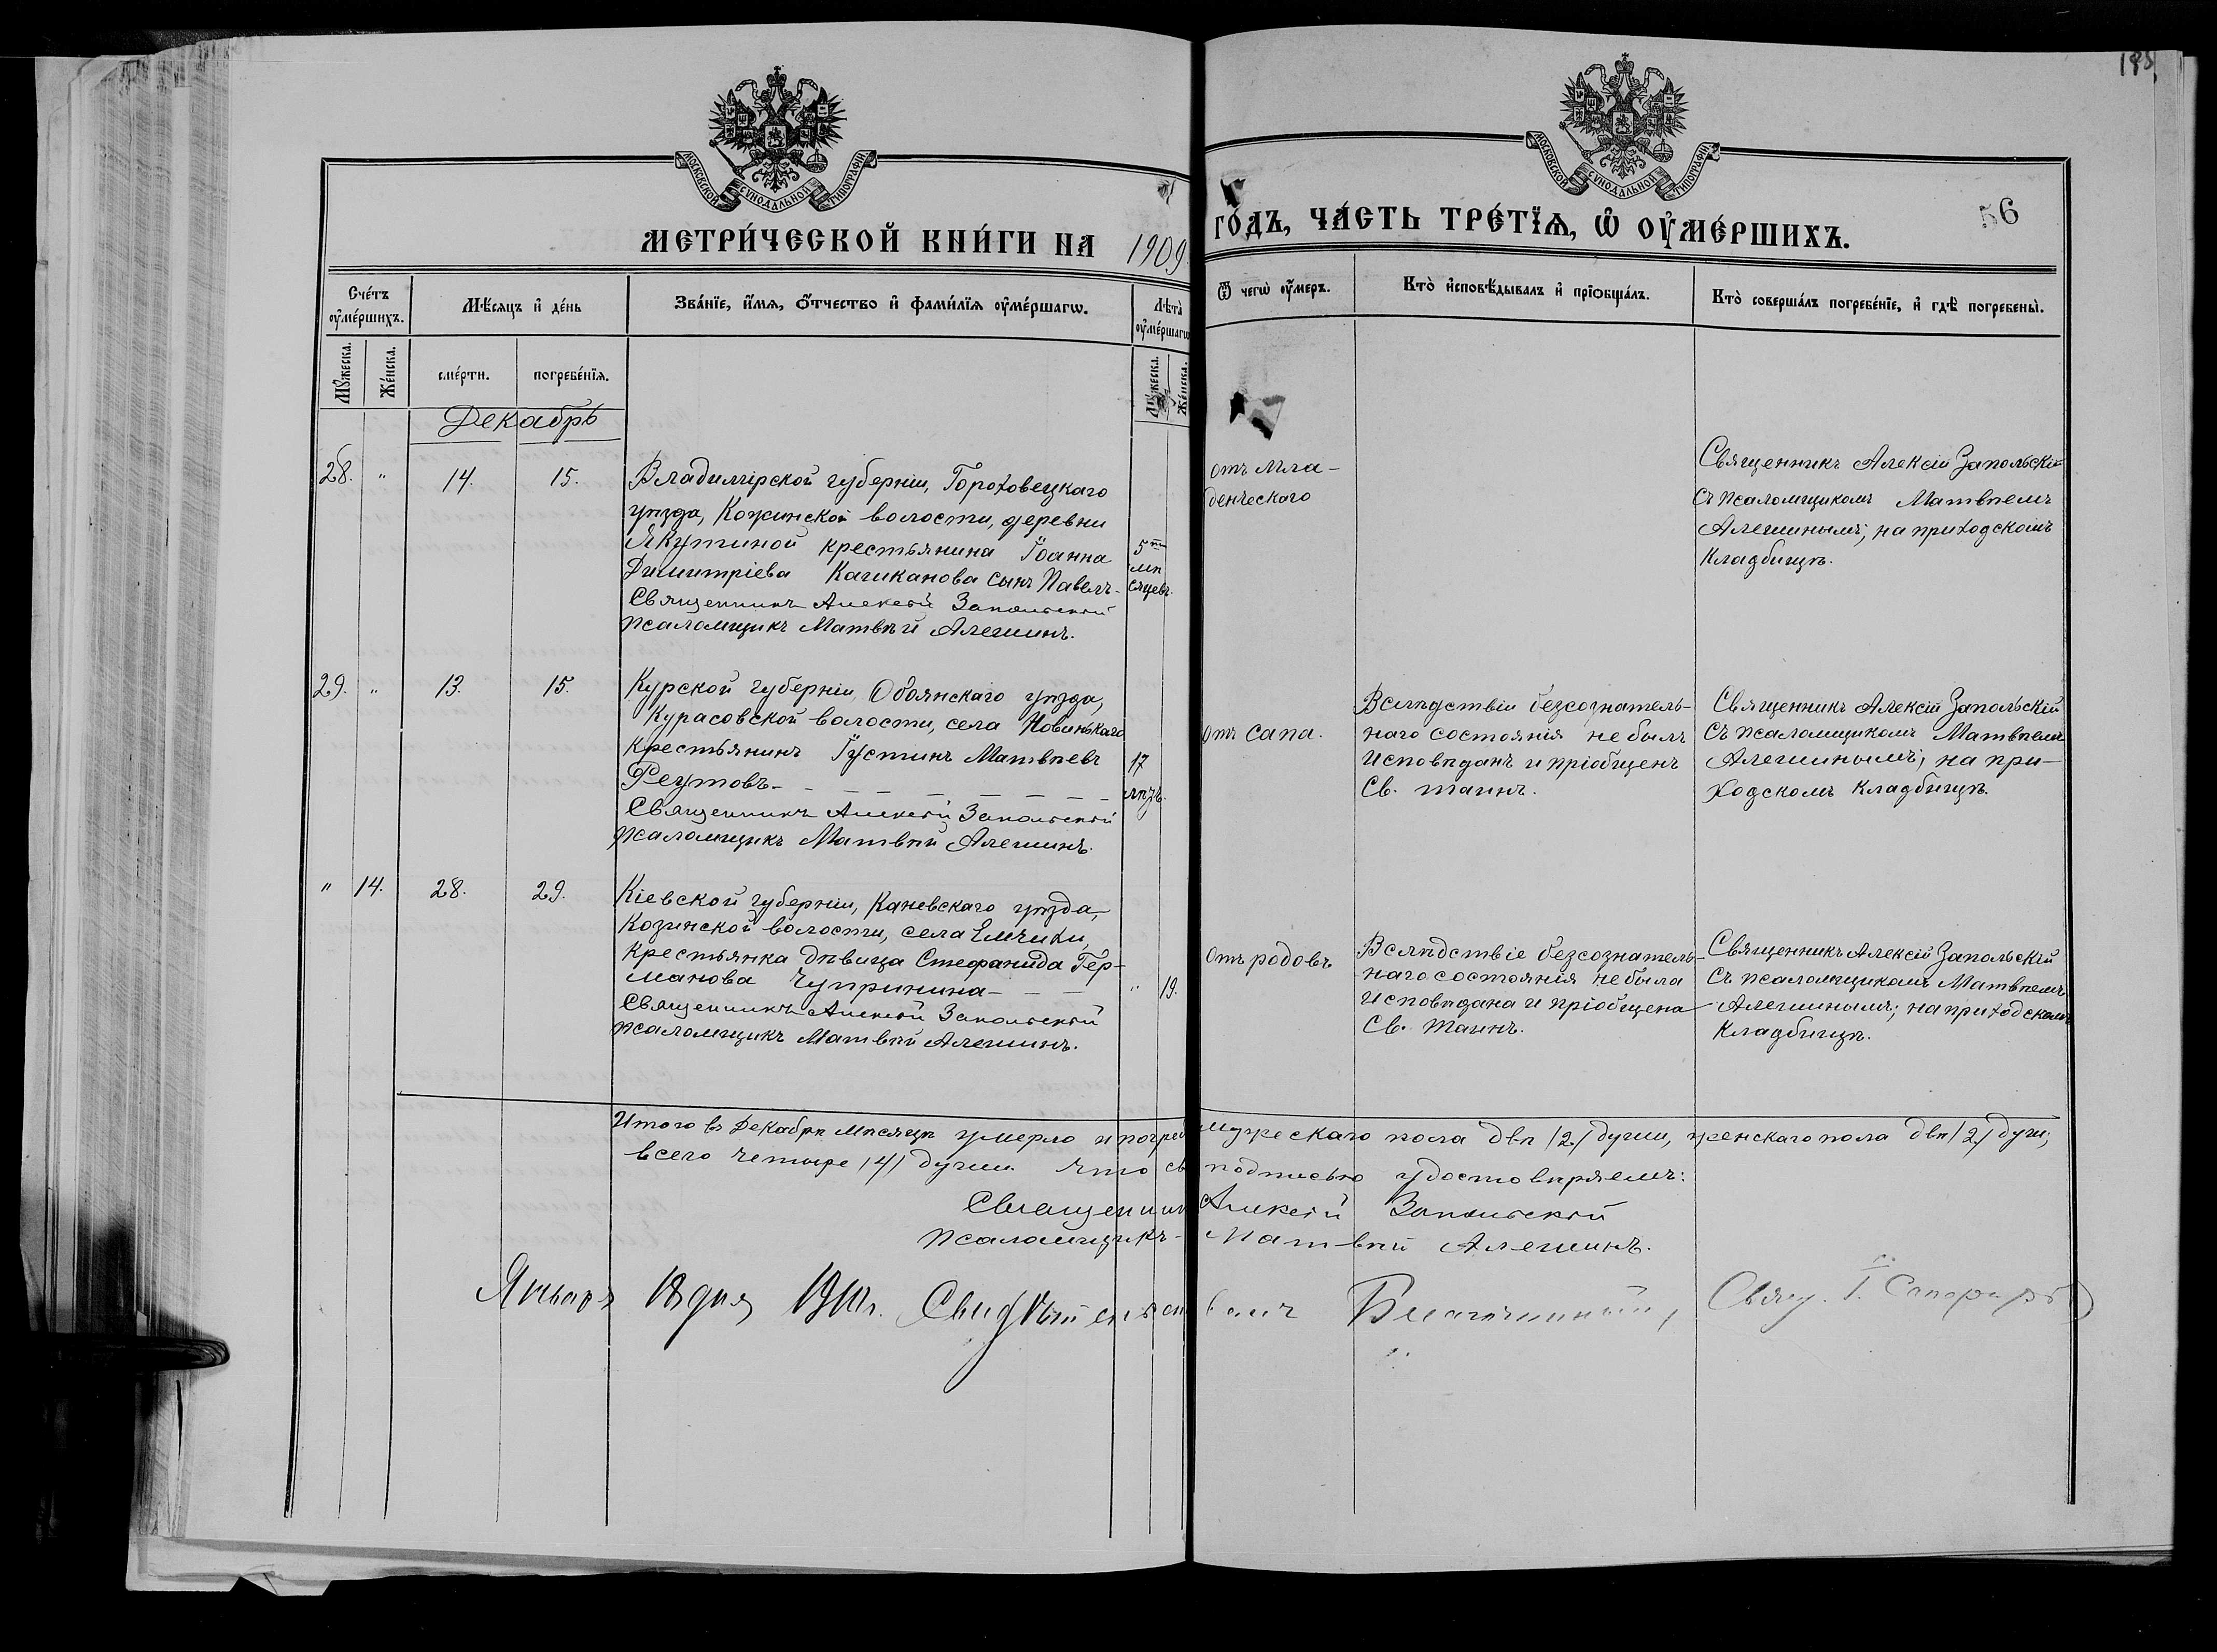 188.
МОСКОВСКОЙ СѴНОДАЛЬНОЙ ТИПОГРАФІИ
МОСКОВСКОЙ СѴНОДАЛЬНОЙ ТИПОГРАФІИ
56
МЕТРИ́ЧЕСКОЙ КНИ́ГИ НА 1909 ГО́ДЪ, ЧА́СТЬ ТРЕ́ТЇѦ, Ѽ ОУ҆МЕ́РШИХЪ.
Сче́тъ оу҆ме́ршихъ.
Мѣ́сяцъ и҆ де́нь
Зва́нїе, и҆́мѧ, ѻ҆́тчество и҆ фами́лїѧ оу҆ме́ршагѡ.
Лѣта̀ оу҆ме́ршагѡ
Ѿ чегѡ̀ оу҆́меръ.
Кто̀ и҆сповѣ́дывалъ и҆ прїѡбща́лъ.
Кто̀ соверша́лъ погребе́нїе, и҆ гдѣ̀ погребены̀.
Мꙋ́жеска.
Же́нска.
сме́рти.
погребе́нїѧ.
Мꙋ́жеска.
Же́нска.
Декабрь
28. " 14. 15.
Владимірской губерніи, Гороховецкаго
уѣзда, Кожинской волости, деревни
Якутиной крестьянина Іоанна
Димитріева Качиканова сынъ Павелъ-
Священникъ Алексій Запольскій
Псаломщикъ Матвѣй Алешинъ.
5ти
мѣ
сяцевъ.
отъ мла-
денческаго
Священникъ Алексій Запольскій
съ псаломщикомъ Матвѣемъ
Алешинымъ; на приходскомъ
кладбищѣ.
29. " 13. 15.
Курской губерніи, Обоянскаго уѣзда,
Курасовской волости, села Новинькаго
крестьянинъ Іустинъ Матвѣевъ
Реутовъ-
Священникъ Алексій Запольскій
Псаломщикъ Матвѣй Алешинъ.
17
лѣтъ.
отъ сапа.
Вслѣдствіи безсознатель-
наго состоянія не былъ
исповѣданъ и пріобщенъ
Св. таинъ.
Священникъ Алексій Запольскій
съ псаломщикомъ Матвѣемъ
Алешинымъ; на при-
ходскомъ кладбищѣ.
" 14. 28. 29.
Кіевской губерніи, Каневскаго уѣзда,
Козинской волости, села Емчихи,
крестьянка дѣвица Стефанида Гер-
манова Чупринина-
Священникъ Алексій Запольскій
Псаломщикъ Матвѣй Алешинъ.
" 19.
отъ родовъ
Вслѣдствіе безсознатель-
наго состоянія не была
исповѣдана и пріобщена
Св. Таинъ.
Священникъ Алексій Запольскій
съ псаломщикомъ Матвѣемъ
Алешинымъ; на приходскомъ
кладбищѣ.
Итого въ Декабрѣ мѣсяцѣ умерло и погреб мужескаго пола двѣ /2/ души, женскаго пола двѣ /2/ души,
всего четыре /4/ души. Что св подписью удостовѣряемъ:
Священник Алексій Запольскій
Псаломщикъ- Матвѣй Алешинъ.
Января 18 дня 1910 г. Свидѣтельство валъ Благочинный, Свящ. І.